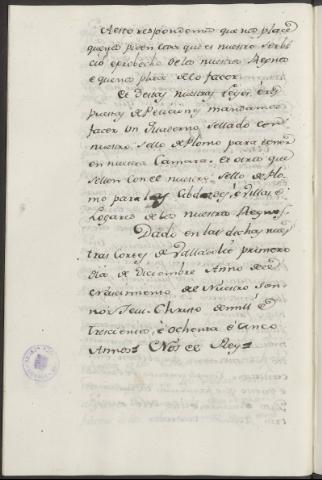 A esto respondemos que nos place
que nos piden cosa que es nuestro servi
cio é probecho de los nuestros Reynos
e que nos place de lo facer.
Et destas nuestras Leyes e res
puestas de Peticiones mandamos
facer un Quaderno sellado con
nuestro sello de Plomo para tener
en nuestra Camara: Et otros que
sellen con el nuestro sello de Plo
mo para las Cibdades, é Villas, é
Logares de los nuestros Reynos.
Dado en las dichas nues
tras Cortes de Valladolid primero
dia de Diciembre Anno de el
Nascimiento de Nuestro Sen
nor Jesu-Christo de mill é
trescientos, é ochenta é cinco
annos. Nos el Rey =